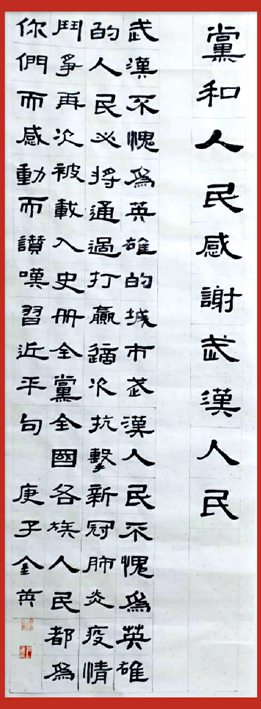 黨和人民感謝武漢人民
武漢不愧爲英雄的城市武漢人民不愧爲英雄
的人民必將通過打贏這次抗擊新冠肺炎疫情
鬥爭再次被載入史冊全黨全國各族人民都爲
你們而感動而讚嘆習近平句 庚子金英